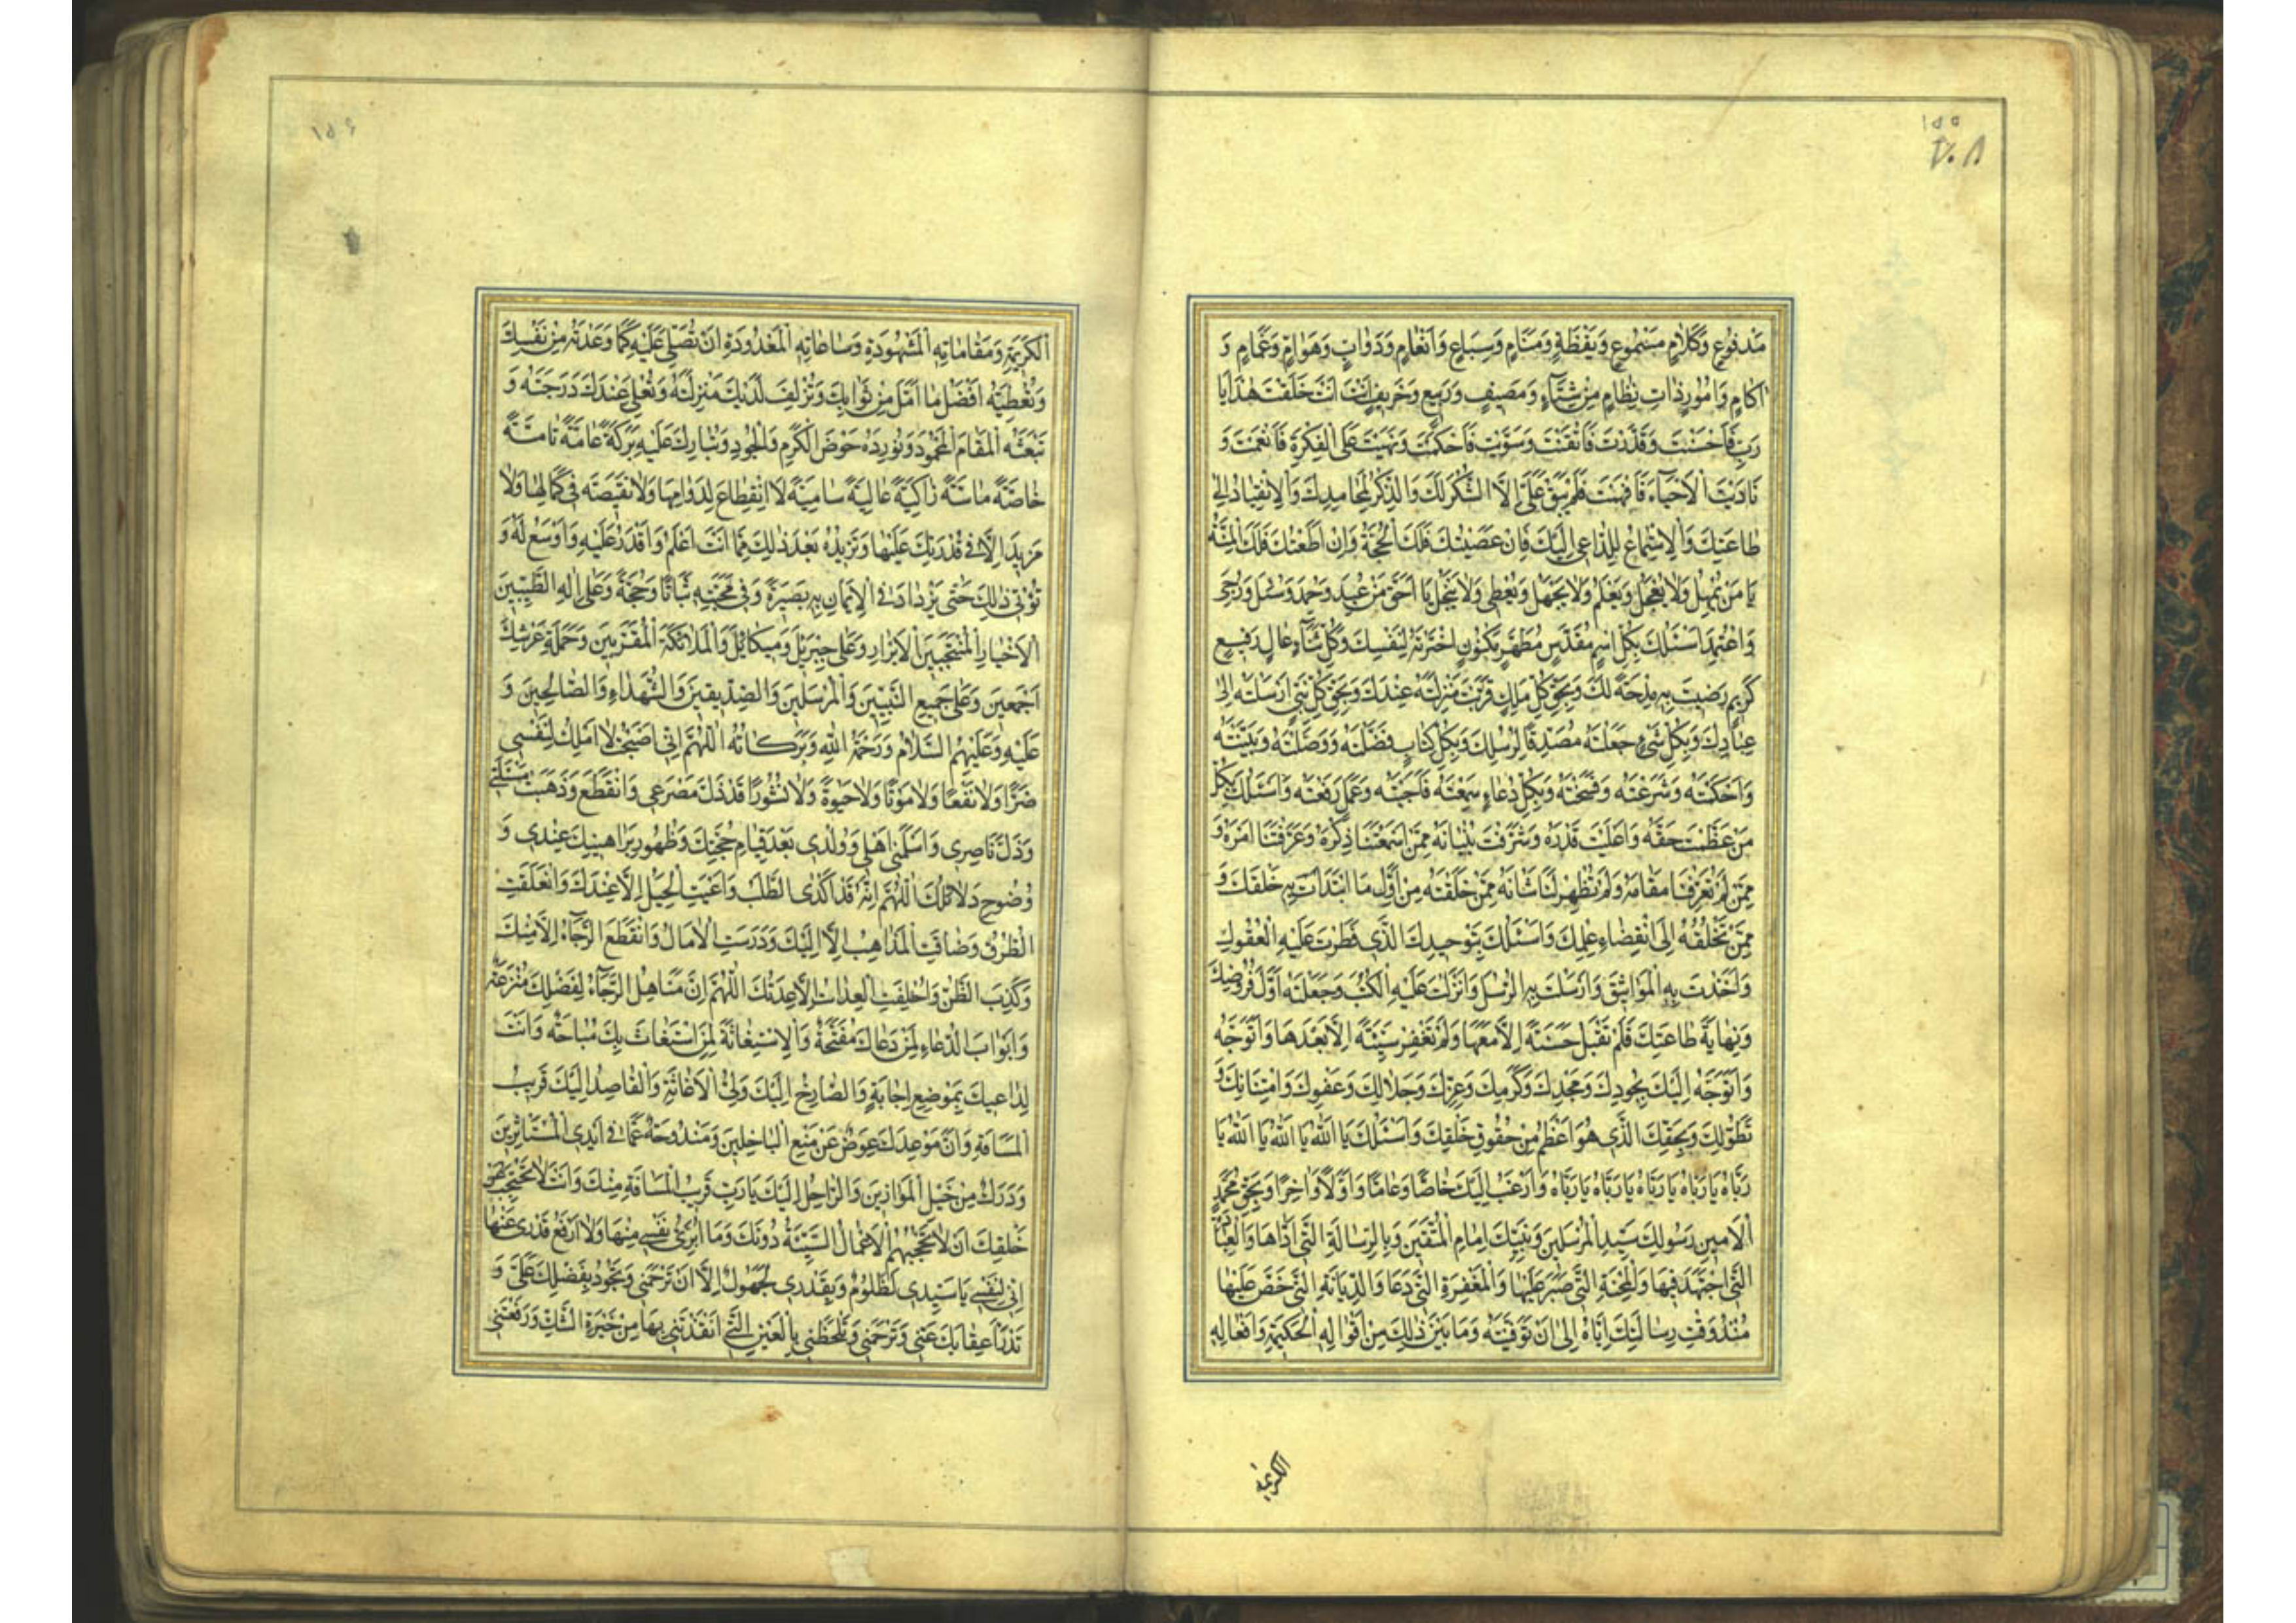 ١٥٥
٢٠٨
مَدْفُوعٍ وَكَلَامٍ مَسْمُوعٍ وَيَقَظَةٍ وَمَنَامٍ وَسِبَاعٍ وَاَنْعَامٍ وَدَوَابٍّ وَهَوَامٍّ وَغَمَامٍ وَ
آكَامٍ وَاُمُورٍ ذَاتِ نِظَامٍ مِنْ شِتَاءٍ وَمَصِيفٍ وَرَبِيعٍ وَخَرِيفٍ اَنْتَ اَنْتَ خَلَقْتَ هٰذَا يَا
رَبِّ فَاَحْسَنْتَ وَقَدَّرْتَ فَاَتْقَنْتَ وَسَوَّيْتَ فَاَحْكَمْتَ وَنَبَّهْتَ عَلَى الْفِكْرَةِ فَاَنْعَمْتَ وَ
نَادَيْتَ الْاَحْيَاءَ فَاَفْهَمْتَ فَلَمْ يَبْقَ عَلَيَّ اِلَّا الشُّكْرُ لَكَ وَالذِّكْرُ لِمَحَامِدِكَ وَالْاِنْقِيَادُ اِلَى
طَاعَتِكَ وَالْاِسْتِمَاعُ لِلدَّاعِي اِلَيْكَ فَاِنْ عَصَيْتُكَ فَلَكَ الْحُجَّةُ وَاِنْ اَطَعْتُكَ فَلَكَ الْمِنَّةُ
يَا مَنْ يُمْهِلُ وَلَا يُعَجِّلُ وَيَعْلَمُ وَلَا يَجْهَلُ وَيُعْطِي وَلَا يَبْخَلُ يَا اَحَقَّ مَنْ عُبِدَ وَحُمِدَ وَسُئِلَ وَرُجِيَ
وَاعْتُمِدَ اَسْئَلُكَ بِكُلِّ اسْمٍ مُقَدَّسٍ مُطَهَّرٍ مَكْنُونٍ اخْتَرْتَهُ لِنَفْسِكَ وَكُلِّ ثَنَاءٍ عَالٍ رَفِيعٍ
كَرِيمٍ رَضِيتَ بِهِ مِدْحَةً لَكَ وَبِحَقِّ كُلِّ مَلَكٍ قَرُبَتْ مَنْزِلَتُهُ عِنْدَكَ وَبِحَقِّ كُلِّ نَبِيٍّ اَرْسَلْتَهُ اِلَى
عِبَادِكَ وَبِكُلِّ شَيْءٍ جَعَلْتَهُ مُصَدِّقًا لِرُسُلِكَ وَبِكُلِّ كِتَابٍ فَضَّلْتَهُ وَوَصَّلْتَهُ وَبَيَّنْتَهُ
وَاَحْكَمْتَهُ وَشَرَعْتَهُ وَنَسَخْتَهُ وَبِكُلِّ دُعَاءٍ سَمِعْتَهُ فَاَجَبْتَهُ وَعَمَلٍ رَفَعْتَهُ وَاَسْئَلُكَ بِكُلِّ
مَنْ عَظَّمْتَ حَقَّهُ وَاَعْلَيْتَ قَدْرَهُ وَشَرَّفْتَ بُنْيَانَهُ مِمَّنْ اَسْمَعْتَنَا ذِكْرَهُ وَعَرَّفْتَنَا اَمْرَهُ وَ
مِمَّنْ لَمْ تُعَرِّفْنَا مَقَامَهُ وَلَمْ تُظْهِرْ لَنَا شَانَهُ مِمَّنْ خَلَقْتَهُ مِنْ اَوَّلِ مَا ابْتَدَاْتَ بِهِ خَلْقَكَ وَ
مِمَّنْ تَخْلُقُهُ اِلَى انْقِضَاءِ عِلْمِكَ وَاَسْئَلُكَ بِتَوْحِيدِكَ الَّذِي فَطَرْتَ عَلَيْهِ الْعُقُولَ
وَاَخَذْتَ بِهِ الْمَوَاثِيقَ وَاَرْسَلْتَ بِهِ الرُّسُلَ وَاَنْزَلْتَ عَلَيْهِ الْكُتُبَ وَجَعَلْتَهُ اَوَّلَ فُرُوضِكَ
وَنِهَايَةَ طَاعَتِكَ فَلَمْ تَقْبَلْ حَسَنَةً اِلَّا مَعَهَا وَلَمْ تَغْفِرْ سَيِّئَةً اِلَّا بَعْدَهَا وَاَتَوَجَّهُ
وَاَتَوَجَّهُ اِلَيْكَ بِجُودِكَ وَمَجْدِكَ وَكَرَمِكَ وَعِزِّكَ وَجَلَالِكَ وَعَفْوِكَ وَامْتِنَانِكَ وَ
تَطَوُّلِكَ وَبِحَقِّكَ الَّذِي هُوَ اَعْظَمُ مِنْ حُقُوقِ خَلْقِكَ وَاَسْئَلُكَ يَا اَللهُ يَا اَللهُ يَا اَللهُ يَا
رَبَّاهُ يَا رَبَّاهُ يَا رَبَّاهُ يَا رَبَّاهُ يَا رَبَّاهُ وَاَرْغَبُ اِلَيْكَ خَاصًّا وَعَامًّا وَاَوَّلًا وَآخِرًا وَبِحَقِّ مُحَمَّدٍ
الْاَمِينِ رَسُولِكَ سَيِّدِ الْمُرْسَلِينَ وَنَبِيِّكَ اِمَامِ الْمُتَّقِينَ وَبِالرِّسَالَةِ الَّتِي اَدَّاهَا وَالْعِبَادَةِ
الَّتِي اجْتَهَدَ فِيهَا وَالْمِحْنَةِ الَّتِي صَبَرَ عَلَيْهَا وَالْمَغْفِرَةِ الَّتِي دَعَا وَالدِّيَانَةِ الَّتِي حَضَّ عَلَيْهَا
مُنْذُ وَقْتِ رِسَالَتِكَ اِيَّاهُ اِلَى اَنْ تَوَفَّيْتَهُ وَمَا بَيْنَ ذٰلِكَ مِنْ اَقْوَالِهِ الْحَكِيمَةِ وَاَفْعَالِهِ
الكريمة
١٥٦
الْكَرِيمَةِ وَمَقَامَاتِهِ الْمَشْهُودَةِ وَسَاعَاتِهِ الْمَعْدُودَةِ اَنْ تُصَلِّيَ عَلَيْهِ كَمَا وَعَدْتَهُ مِنْ نَفْسِكَ
وَتُعْطِيَهُ اَفْضَلَ مَا اَمَّلَ مِنْ ثَوَابِكَ وَتُزْلِفَ لَدَيْكَ مَنْزِلَتَهُ وَتُعْلِيَ عِنْدَكَ دَرَجَتَهُ وَ
تَبْعَثَهُ الْمَقَامَ الْمَحْمُودَ وَتُورِدَهُ حَوْضَ الْكَرَمِ وَالْجُودِ وَتُبَارِكَ عَلَيْهِ بَرَكَةً عَامَّةً تَامَّةً
خَاصَّةً مَاسَّةً زَاكِيَةً عَالِيَةً سَامِيَةً لَا انْقِطَاعَ لِدَوَامِهَا وَلَا نَقِيصَةَ فِي كَمَالِهَا وَلَا
مَزِيدَ اِلَّا فِي قُدْرَتِكَ عَلَيْهَا وَتَزِيدُهُ بَعْدَ ذٰلِكَ مِمَّا اَنْتَ اَعْلَمُ وَاَقْدَرُ عَلَيْهِ وَاَوْسَعُ لَهُ وَ
تُؤْتِيَ ذٰلِكَ حَتَّى يَزْدَادَ فِي الْاِيمَانِ بِهِ بَصِيرَةً وَفِي مَحَبَّتِهِ ثَبَاتًا وَحُجَّةً وَعَلَى آلِهِ الطَّيِّبِينَ
الْاَخْيَارِ الْمُنْتَجَبِينَ الْاَبْرَارِ وَعَلَى جِبْرِيلَ وَمِيكَائِلَ وَالْمَلَائِكَةِ الْمُقَرَّبِينَ وَحَمَلَةِ عَرْشِكَ
اَجْمَعِينَ وَعَلَى جَمِيعِ النَّبِيِّينَ وَالْمُرْسَلِينَ وَالصِّدِّيقِينَ وَالشُّهَدَاءِ وَالصَّالِحِينَ وَ
عَلَيْهِ وَعَلَيْهِمُ السَّلَامُ وَرَحْمَةُ اللهِ وَبَرَكَاتُهُ اَللّٰهُمَّ اِنِّي اَصْبَحْتُ لَا اَمْلِكُ لِنَفْسِي
ضَرًّا وَلَا نَفْعًا وَلَا مَوْتًا وَلَا حَيٰوةً وَلَا نُشُورًا قَدْ ذَلَّ مَصْرَعِي وَانْقَطَعَ وَذَهَبَ مَسْئَلَتِي
وَذَلَّ نَاصِرِي وَاَسْلَمَنِي اَهْلِي وَوَلَدِي بَعْدَ قِيَامِ حُجَّتِكَ وَظُهُورِ بَرَاهِينِكَ عِنْدِي وَ
وُضُوحِ دَلَائِلِكَ اَللّٰهُمَّ اِنَّهُ قَدْ اَكْدَى الطَّلَبُ وَاَعْيَتِ الْحِيَلُ اِلَّا عِنْدَكَ وَانْغَلَقَتِ
الطُّرُقُ وَضَاقَتِ الْمَذَاهِبُ اِلَّا اِلَيْكَ وَدَرَسَتِ الْاٰمَالُ وَانْقَطَعَ الرَّجَاءُ اِلَّا مِنْكَ
وَكَذِبَ الظَّنُّ وَاُخْلِفَتِ الْعِدَاتُ اِلَّا عِدَتُكَ اَللّٰهُمَّ اِنَّ مَنَاهِلَ الرَّجَاءِ لِفَضْلِكَ مُتْرَعَةٌ
وَاَبْوَابَ الدُّعَاءِ لِمَنْ دَعَاكَ مُفَتَّحَةٌ وَالْاِسْتِغَاثَةَ لِمَنِ اسْتَغَاثَ بِكَ مُبَاحَةٌ وَاَنْتَ
لِدَاعِيكَ بِمَوْضِعِ اِجَابَةٍ وَالصَّارِخِ اِلَيْكَ وَلِيُّ الْاِغَاثَةِ وَالْقَاصِدُ اِلَيْكَ قَرِيبُ
الْمَسَافَةِ وَاَنَّ مَوْعِدَكَ عِوَضٌ عَنْ مَنْعِ الْبَاخِلِينَ وَمَنْدُوحَةٌ عَمَّا فِي اَيْدِي الْمُسْتَاْثِرِينَ
وَدَرَكٌ مِنْ حِيَلِ الْمَوَازِينَ وَالرَّاحِلُ اِلَيْكَ يَا رَبِّ قَرِيبُ الْمَسَافَةِ مِنْكَ وَاَنْتَ لَا تَحْتَجِبُ عَنْ
خَلْقِكَ اَنْ لَا تَحْجُبَهُمُ الْاَعْمَالُ السَّيِّئَةُ دُونَكَ وَمَا اُبَرِّئُ نَفْسِي مِنْهَا وَلَا اَرْفَعُ قَدْرِي عَنْهَا
اِنِّي لِنَفْسِي يَا سَيِّدِي لَظَلُومٌ وَبِقَدْرِي لَجَهُولٌ اِلَّا اَنْ تَرْحَمَنِي وَتَجُودَ بِفَضْلِكَ عَلَيَّ وَ
تَدْرَاَ عِقَابَكَ عَنِّي وَتَرْحَمَنِي وَتَلْحَظَنِي بِالْعَيْنِ الَّتِي اَنْقَذْتَنِي بِهَا مِنْ حَيْرَةِ الشَّكِّ وَرَفَعْتَنِي